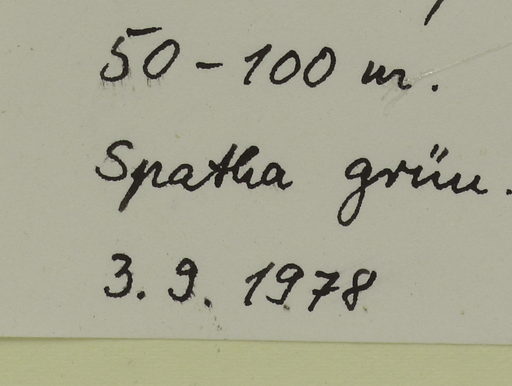 50 - 100 m.
Spatha grün.
3. 9. 1978